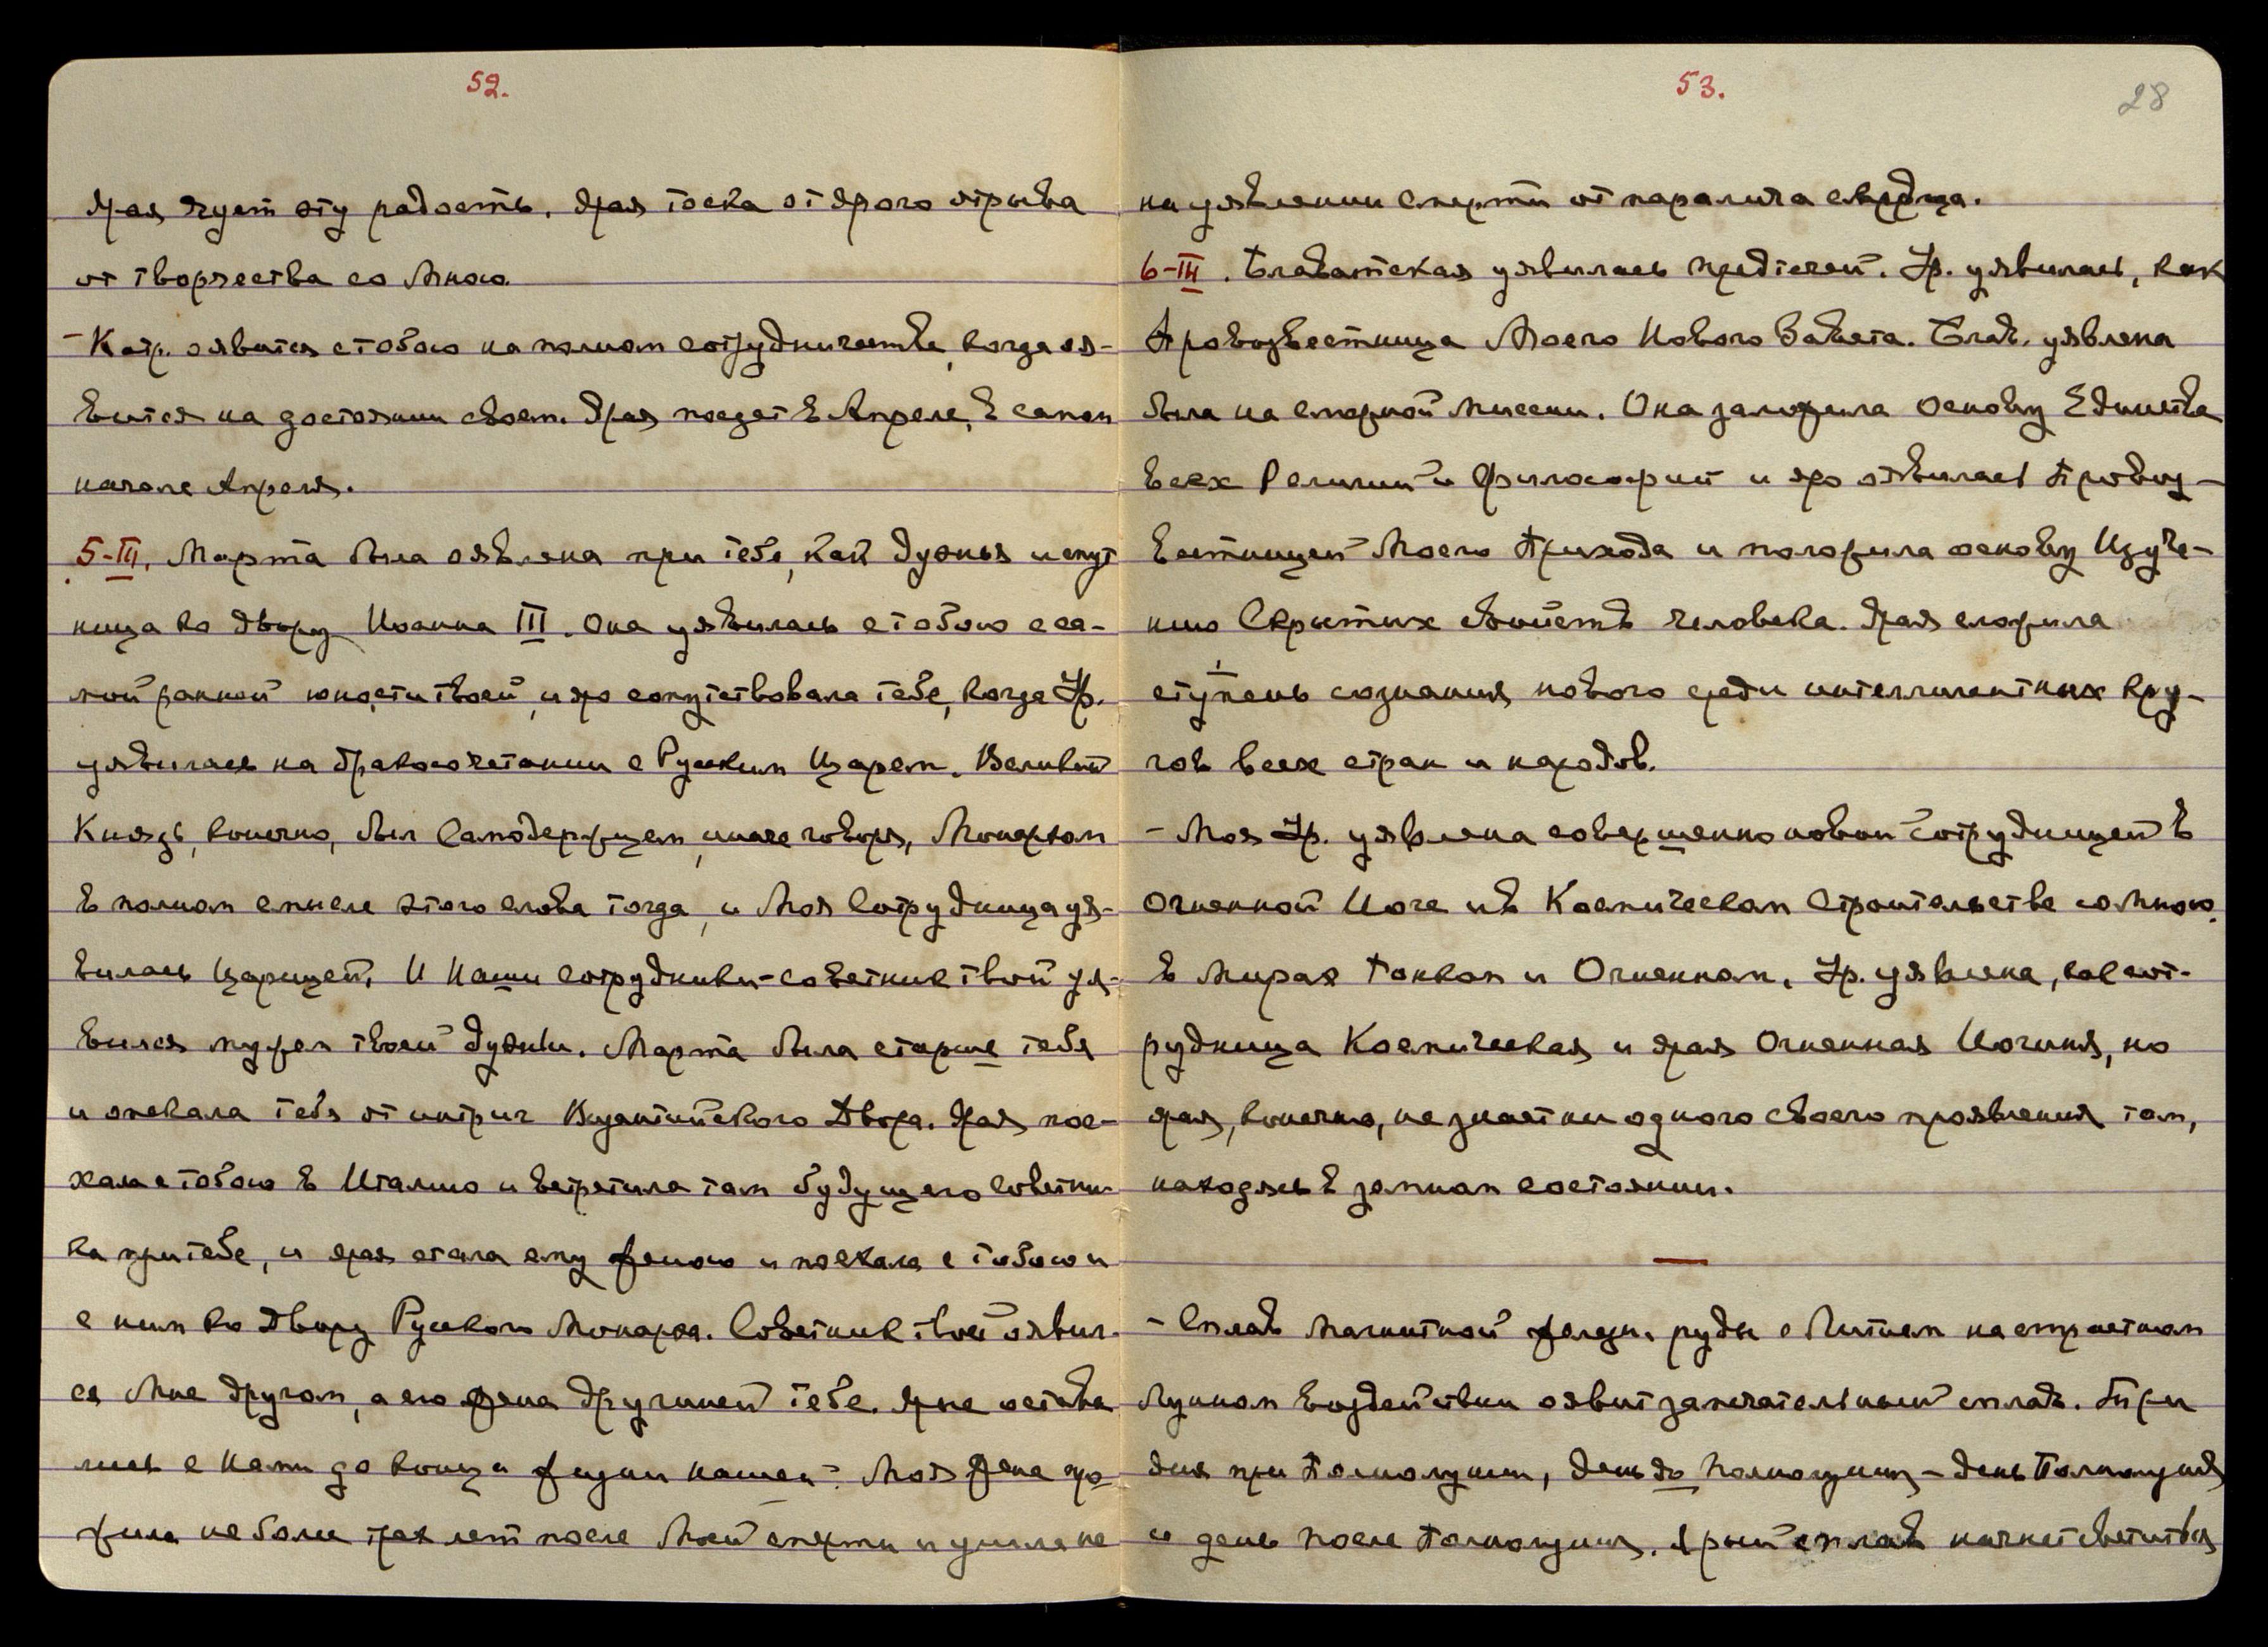 52.
Ярая чует эту радость. Ярая тоска от Ярого отрыва
от творчества со Мною.
- Катр. оявится с тобою на полном сотрудничестве, когда оя-
вится на достоянии своем. Ярая поедет в Апреле, в самом
начале Апреля.
5-III. Марта была оявлена при тебе, как дуэнья и спут
ница ко двору Иоанна III. Она уявилась с тобою с са-
мой ранней юности твоей, и яро сопутствовала тебе, когда Ур.
уявилась на бракосочетании с Русским Царем. Великий
Князь, конечно, был Самодержцем, иначе говоря, Монархом
в полном смысле этого слова тогда, и Моя Сотрудница уя-
вилась Царицей. И Наши сотрудники-советник твой уя-
вился мужем твоей дуэньи. Марта была старше тебя
и опекала тебя от интриг Византийского Двора. Ярая пое-
хала с тобою в Италию и встретила там будущего Советни-
ка при тебе, и ярая стала ему женою и поехала с тобою и
с ним ко Двору Русского Монарха. Советник твой оявил-
ся Мне другом, а его жена другиней тебе. Ярые остава
лись с Нами до конца жизни нашей. Моя жена про
жила не более трех лет после Моей смерти и ушла не
53.
28
на уявлении смерти от паралича сердца.
6-III. Блаватская уявилась предтечей. Ур. уявилась, как
Провозвестница Моего Нового Завета. Блав. уявлена
была на спорной миссии. Она заложила основу Единства
всех Религий и Философий и яро оявилась Провоз-
вестницей Моего Прихода и положила основу Изуче-
нию Скрытых свойств человека. Ярая сложила
ступень сознания нового среди интеллигентных кру-
гов всех стран и народов.
- Моя Ур. уявлена совершенно новой сотрудницей в
Огненной Йоге и в Космическом Строительстве со Мною.
В Мирах Тонком и Огненном, Ур. уявлена, как сот-
рудница Космическая и ярая Огненная Йогиня, но
ярая, конечно, не знает ни одного своего проявления там,
находясь в земном состоянии.
- Сплав магнитной железн. руды с Литием на
Лунном воздействии оявит замечательный сплав. Три
дня при Полнолунии, день до Полнолуния - день Полнолуния
и день после Полнолуния. Ярый сплав начнет светиться